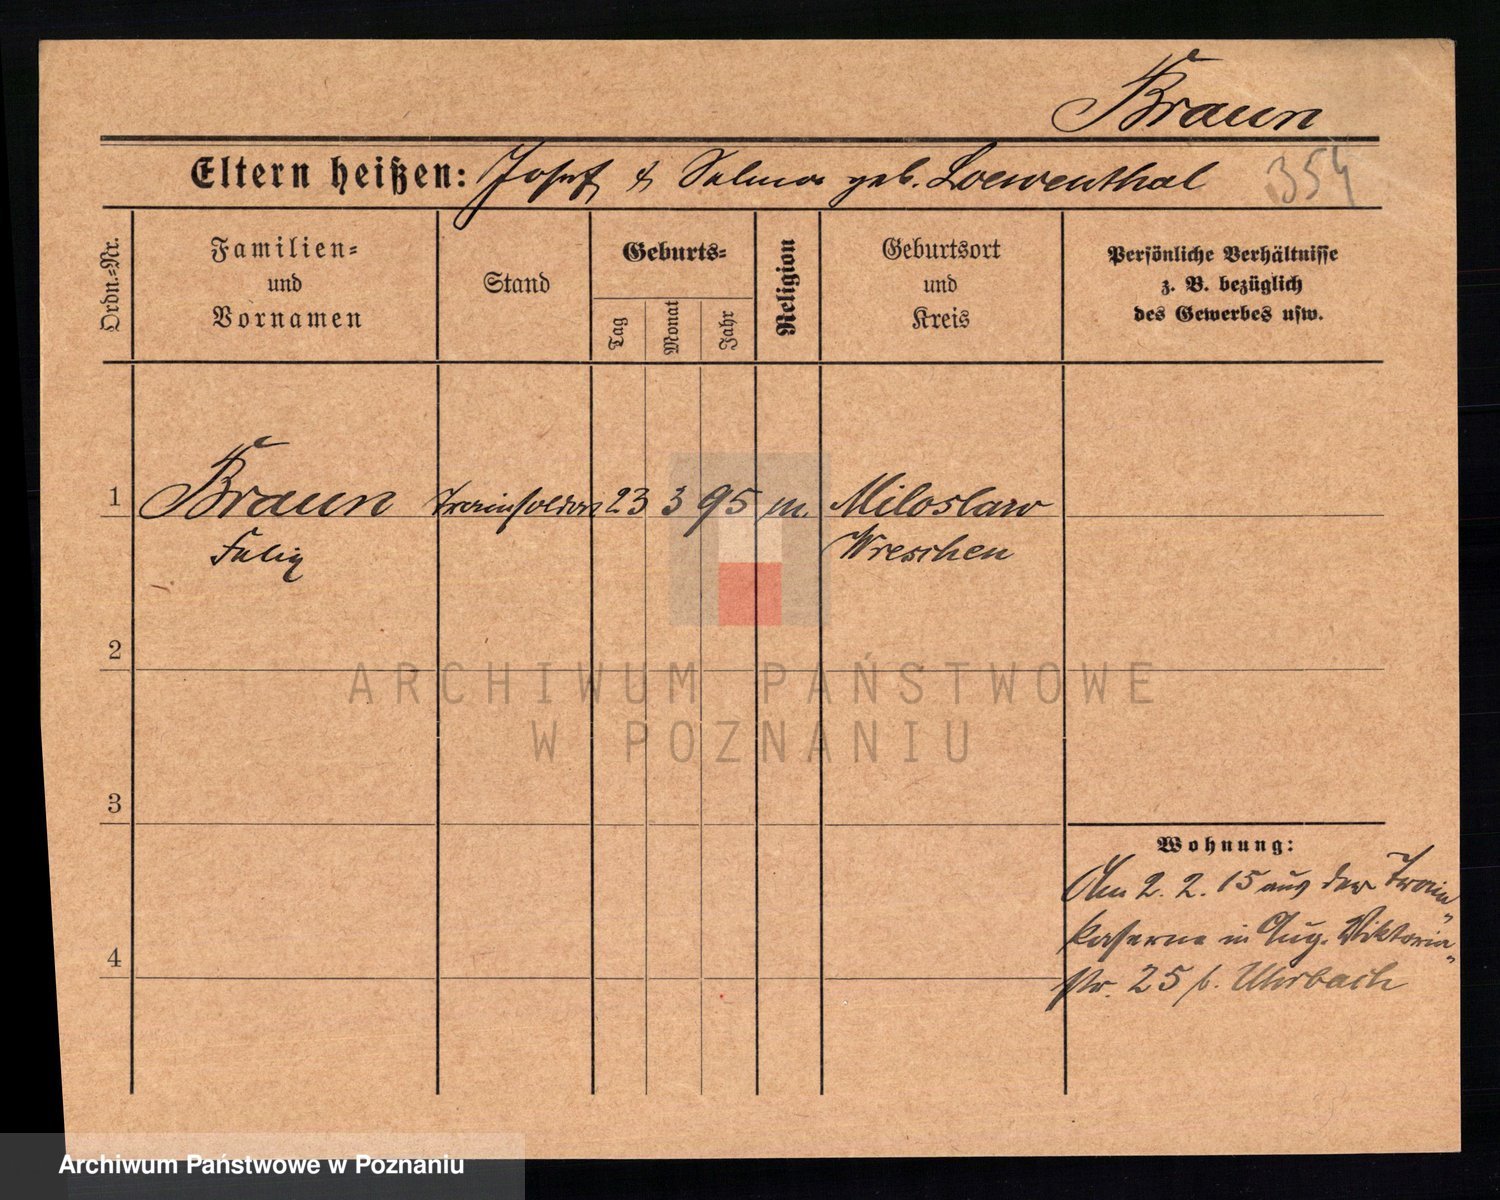 Braun
Eltern heißen: Josef & Selma geb. Loewenthal 354
Ordn.-Nr.
Familien-
und
Vornamen
Stand
Geburts-
Tag
Monat
Jahr
Religion
Geburtsort
und
Kreis
Persönliche Verhältnisse
z. B. bezüglich
des Gewerbes usw.
1 Braun Trainsoldat 23 3 95 m. Miloslaw
Wreschen
2
3
4
Wohnung:
Am 2. 2. 15 aus der Train
kaserne in Aug. Viktoria
str. 25 b. Uhrbach
ARCHIWUM PAŃSTWOWE
W POZNANIU
Archiwum Państwowe w Poznaniu